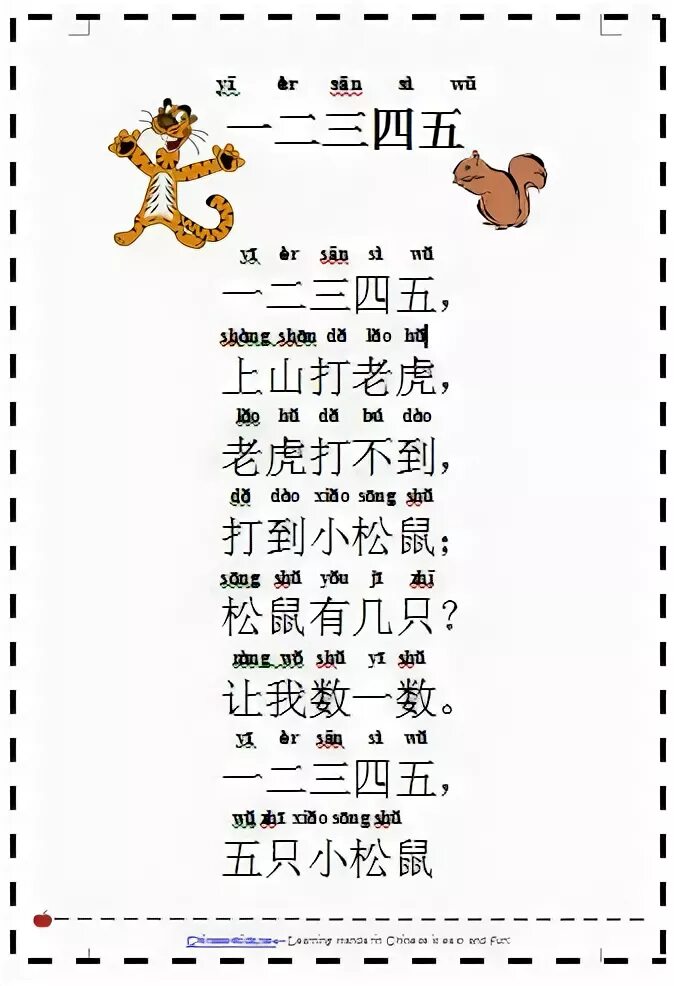 yī èr sān sì wǔ
一二三四五
yī èr sān sì wǔ
一二三四五，
shàng shān dǎ lǎo hǔ
上山打老虎，
lǎo hǔ dǎ bú dào
老虎打不到，
dǎ dào xiǎo sōng shǔ
打到小松鼠；
sōng shǔ yǒu jǐ zhī
松鼠有几只？
ràng wǒ shǔ yī shǔ
让我数一数。
yī èr sān sì wǔ
一二三四五，
wǔ zhī xiǎo sōng shǔ
五只小松鼠
Learning mandarin Chinese is easy and fun